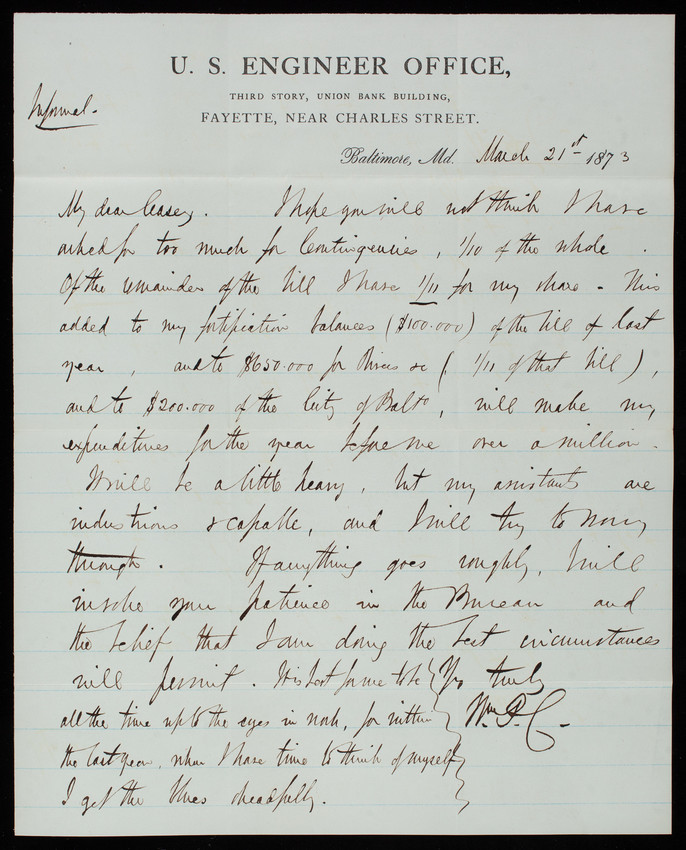 U. S. ENGINEER OFFICE,
THIRD STORY, UNION BANK BUILDING,
FAYETTE, NEAR CHARLES STREET.
Informal.
Baltimore, Md. March 21st 1873
My dear Casey. I hope you will not think I have
asked for too much for Contingencies, 1/10 of the whole.
Of the remainder of the bill I have 1/11 for my share - This
added to my fortification balances ($100.000) of the bill of last
year, and to $650.000 for Rivers &c (1/11 of that bill),
and to $200.000 of the City of Balto, will make my
expenditures for the year before me over a million.
It will be a little heavy, but my assistants are
industrious & capable, and I will try to worry
through. If anything goes roughly, I will
invoke your patience in the Bureau and
the belief that I am doing the best circumstances
will permit. It is best for me to be
all the time up to the eyes in work, for within
the last year, when I have time to think of myself
I get the blues dreadfully.
Yrs truly
Wm. P. C.